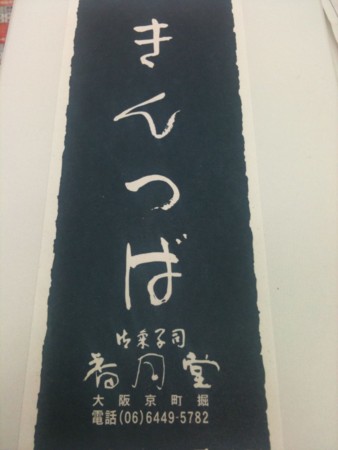 きんつば
御菓子司
香月堂
大阪京町堀
電話(06)6449-5782